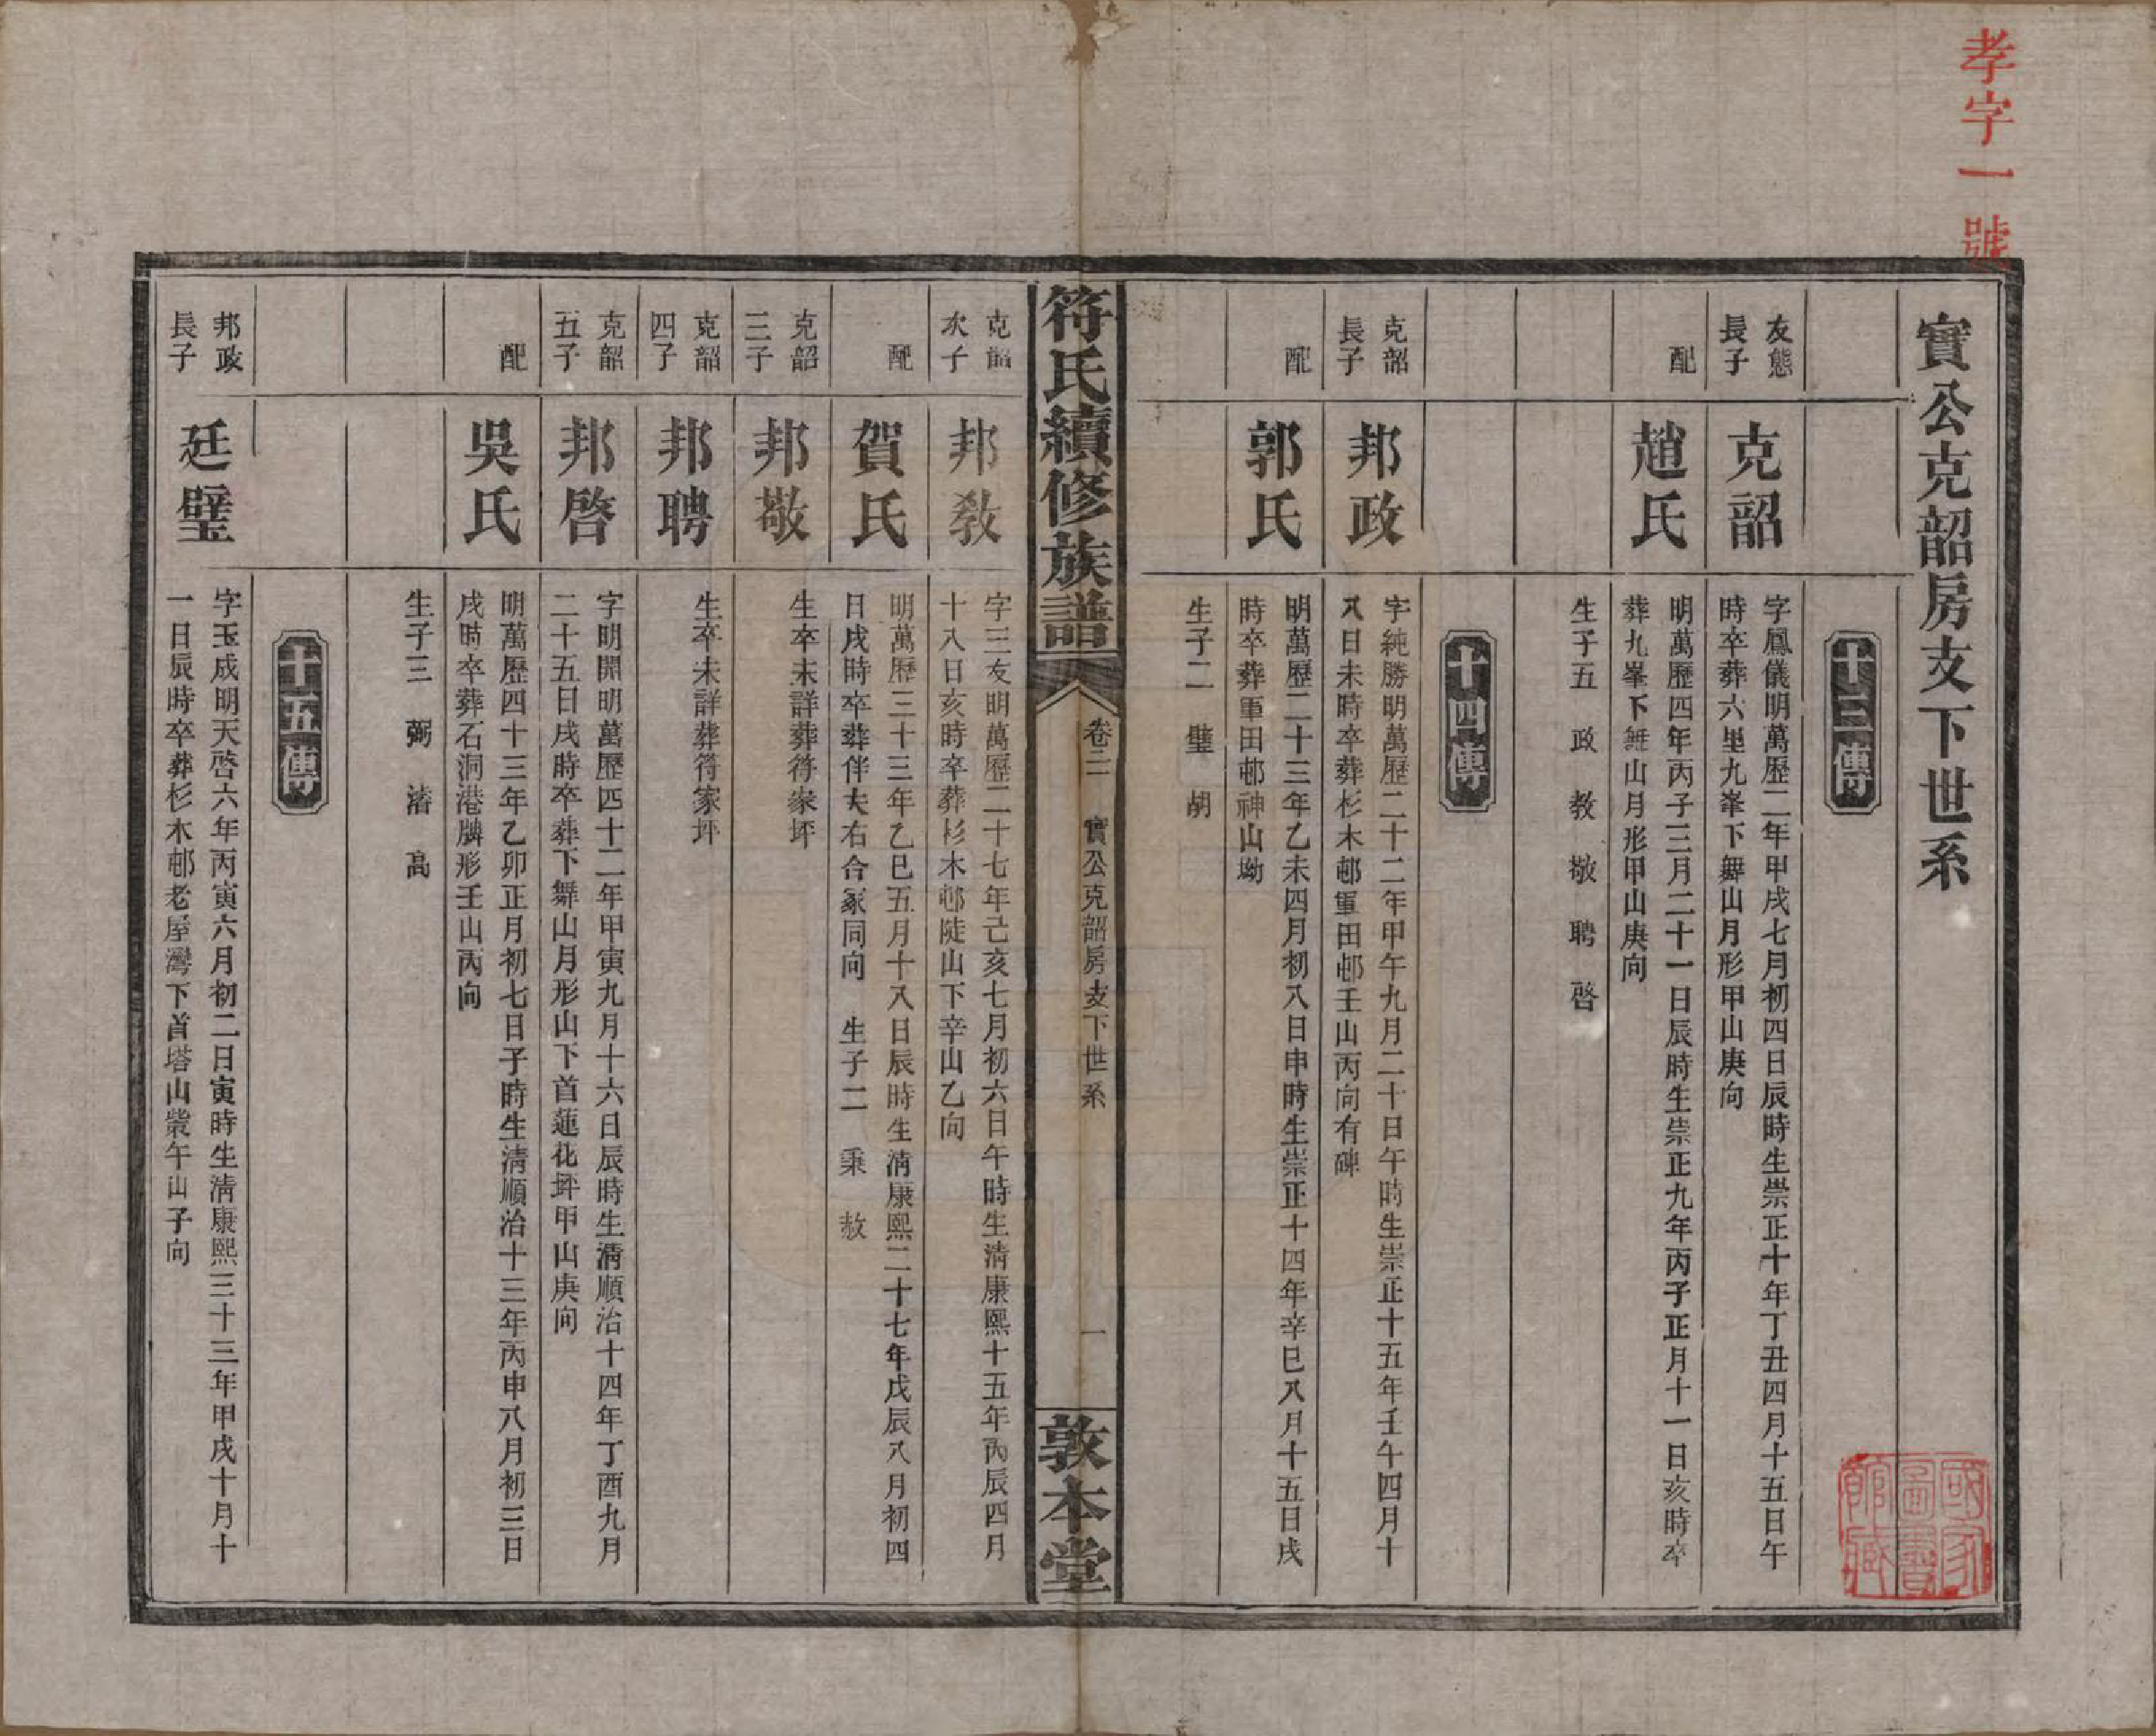 孝字一號
實公克韶房支下世系
十三傳
友態長子
克韶
字鳳儀明萬歷二年甲戌七月初四日辰時生崇正十年丁丑四月十五日午
時卒葬六里九峯下舞山月形甲山庚向
配
趙氏
明萬歷四年丙子三月二十一日辰時生崇正九年丙子正月十一日亥時卒
葬九峯下舞山月形甲山庚向
生子五 政 教 敬 聘 啓
十四傳
克韶長子
邦政
字純勝明萬歷二十二年甲午九月二十日午時生崇正十五年壬午四月十
八日未時卒葬杉木邨軍田邨壬山丙向有碑
配
郭氏
明萬歷二十三年乙未四月初八日申時生崇正十四年辛巳八月十五日戌
時卒葬軍田邨神山坳
生子二 璧 胡
符氏續修族譜
卷二 實公克韶房支下世系
一
敦本堂
克韶次子
邦教
字三友明萬歷二十七年己亥七月初六日午時生清康熙十五年丙辰四月
十八日亥時卒葬杉木邨陡山下辛山乙向
配
賀氏
明萬歷三十三年乙巳五月十八日辰時生清康熙二十七年戊辰八月初四
日戌時卒葬伴夫右合冢同向 生子二 秉 赦
克韶三子
邦敬
生卒未詳葬符家坪
克韶四子
邦聘
生卒未詳葬符家坪
克韶五子
邦啓
字明開明萬歷四十二年甲寅九月十六日辰時生清順治十四年丁酉九月
二十五日戌時卒葬下舞山月形山下首蓮花坪甲山庚向
配
吳氏
明萬歷四十三年乙卯正月初七日子時生清順治十三年丙申八月初三日
戌時卒葬石洞港腾形壬山丙向
生子三 弼 濬 高
十五傳
邦政長子
廷璧
字玉成明天啓六年丙寅六月初二日寅時生清康熙三十三年甲戌十月十
一日辰時卒葬杉木邨老屋灣下首塔山業午山子向
國家圖書館藏